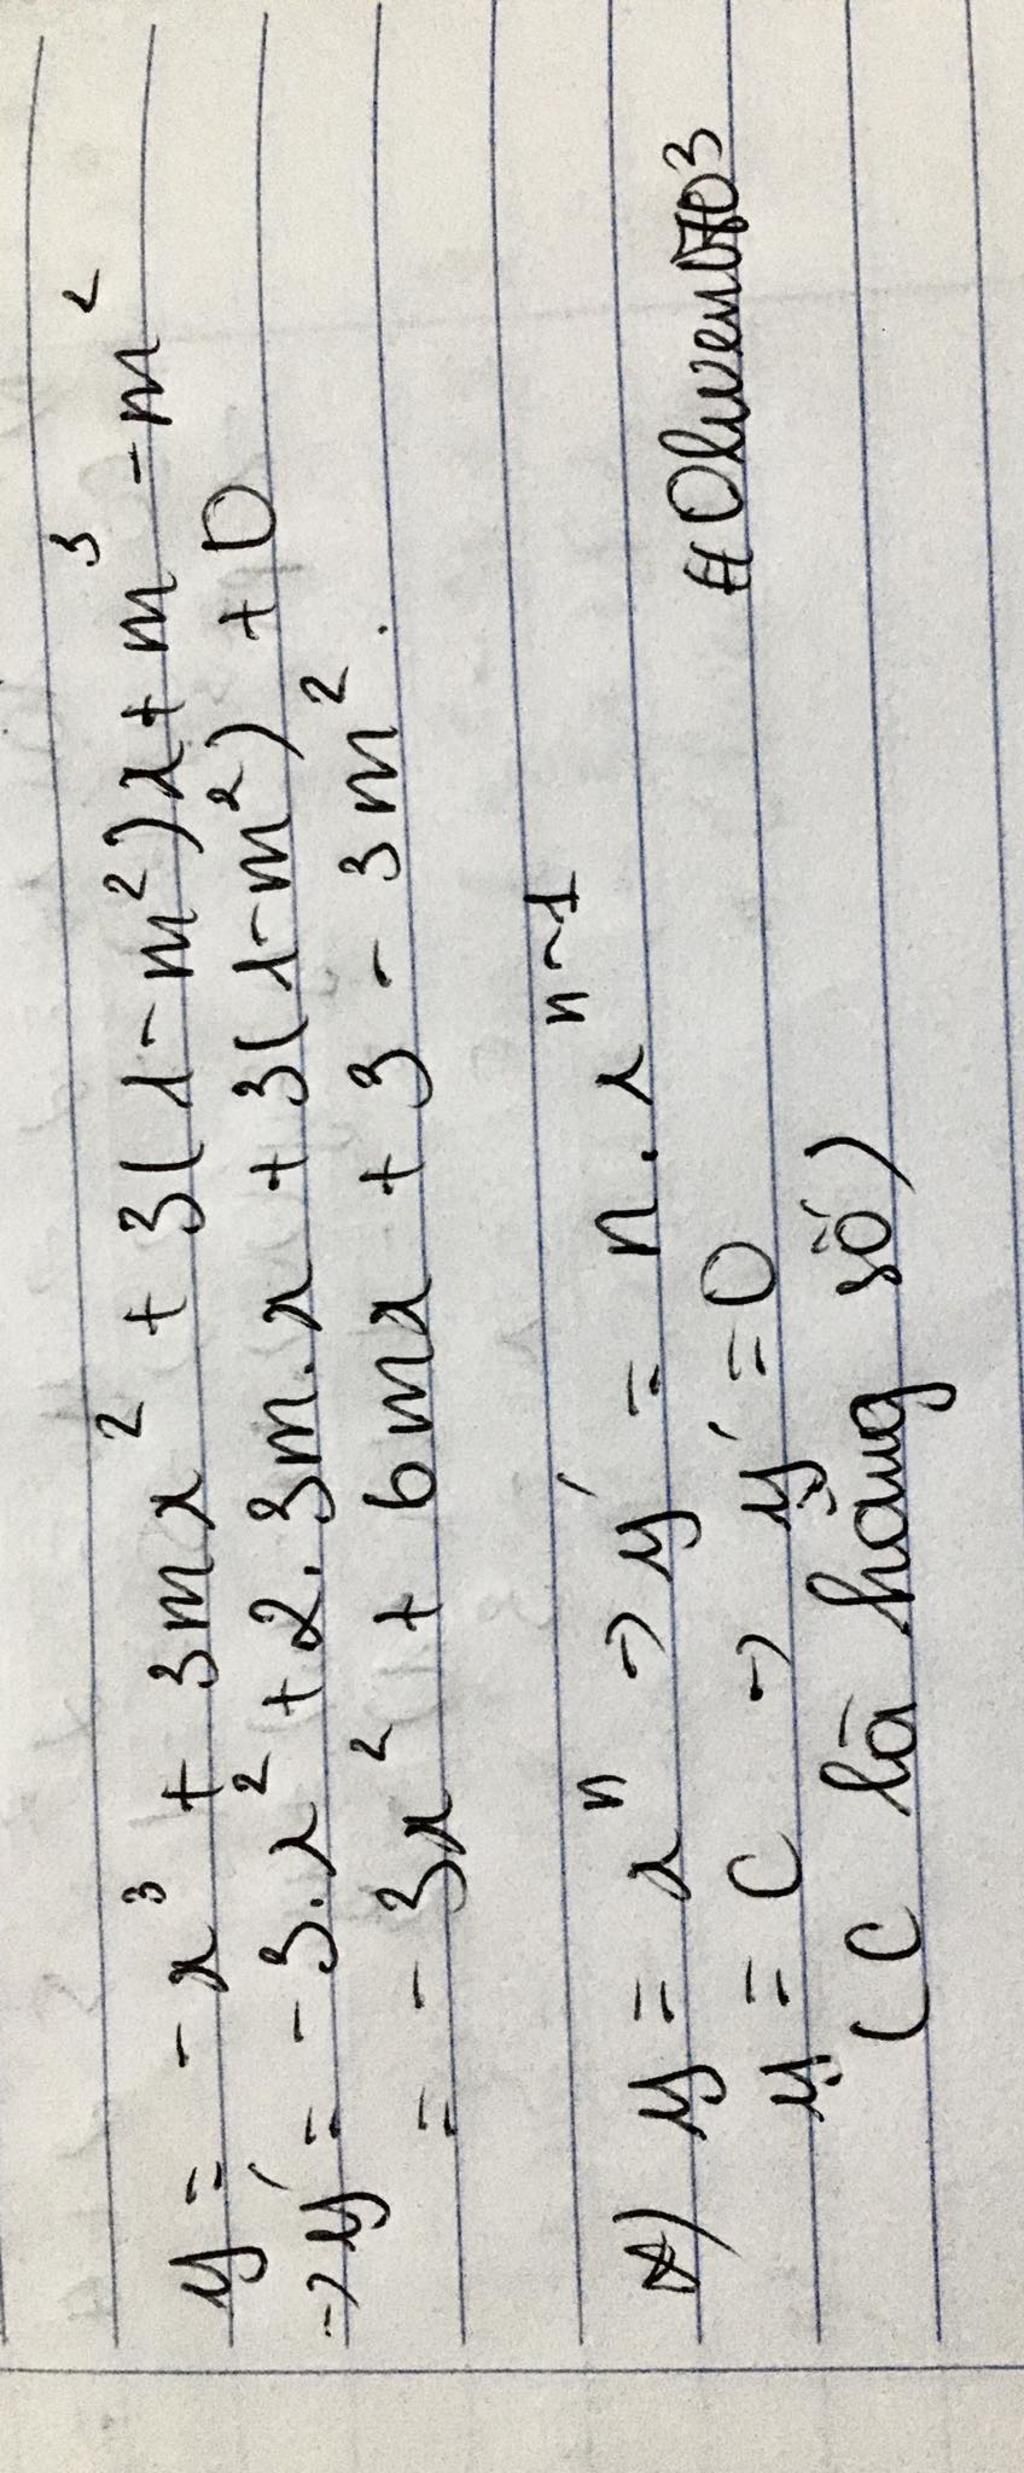 y = -x³ + 3mx² + 3(1-m²)x + m³ - m²
→ y' = -3.x² + 2.3m.x + 3(1-m²) + 0
= -3x² + 6mx + 3 - 3m².
*) y = xⁿ → y' = n.xⁿ⁻¹
y = C → y' = 0
(C là hằng số)